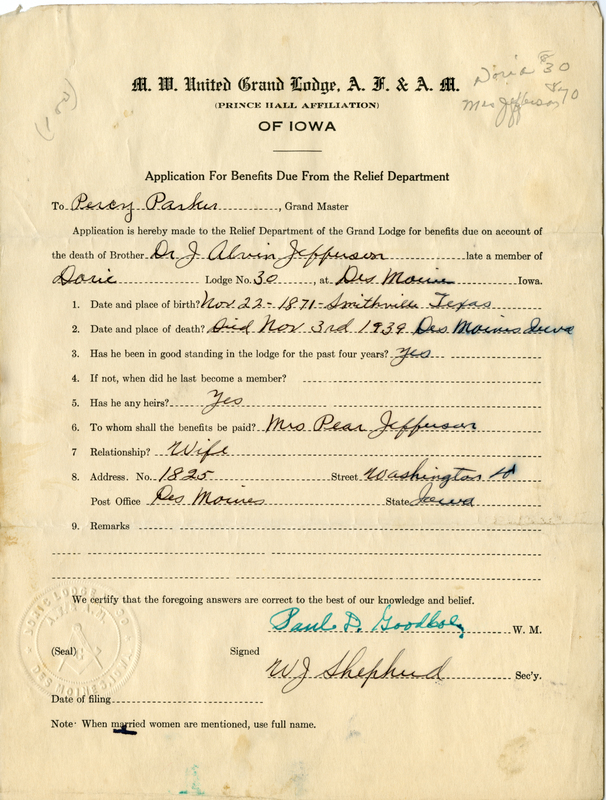 Doric #30
Mrs Jefferson 70
M. W. United Grand Lodge, A. F. & A. M.
(PRINCE HALL AFFILIATION)
OF IOWA
Application For Benefits Due From the Relief Department
To Percy Parker, Grand Master
Application is hereby made to the Relief Department of the Grand Lodge for benefits due on account of
the death of Brother Dr J. Alvin Jefferson late a member of
Doric Lodge No. 30, at Des Moines Iowa.
1. Date and place of birth? Nov 22 - 1871 - Smithville Texas
2. Date and place of death? Died Nov 3rd 1939 Des Moines Iowa
3. Has he been in good standing in the lodge for the past four years? Yes
4. If not, when did he last become a member?
5. Has he any heirs? Yes
6. To whom shall the benefits be paid? Mrs Pear Jefferson
7 Relationship? Wife
8. Address. No. 1825 Street Washington
Post Office Des Moines State Iowa
9. Remarks
We certify that the foregoing answers are correct to the best of our knowledge and belief.
Paul D. W. M.
(Seal) Signed
W J Shepherd Sec'y.
Date of filing
Note· When married women are mentioned, use full name.